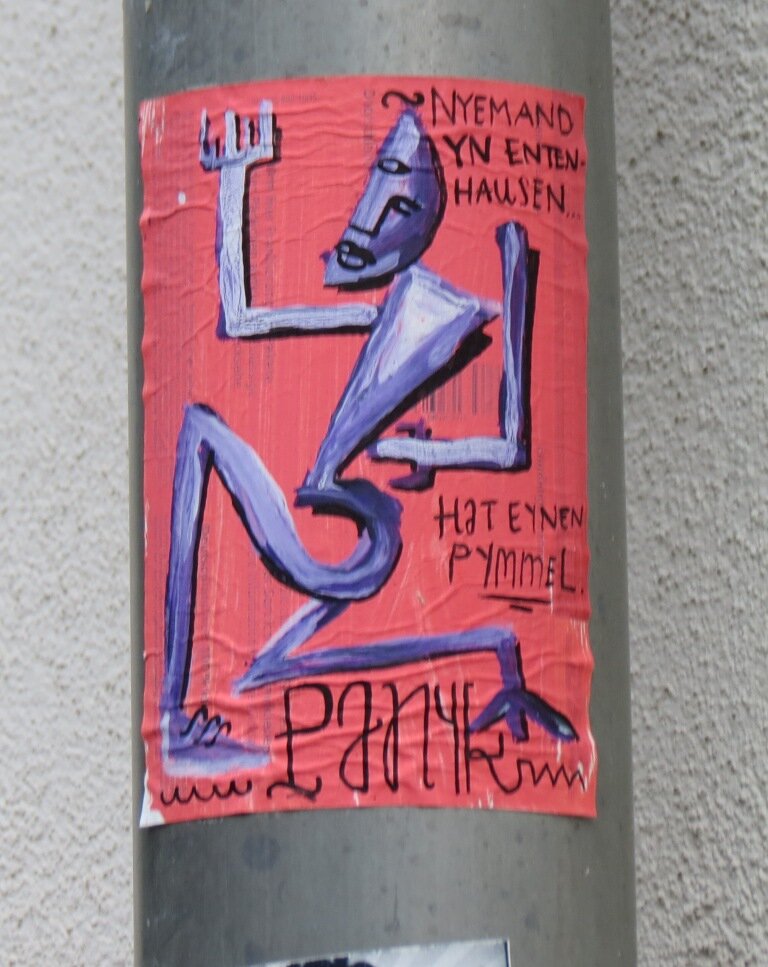 NYEMAND
YN ENTEN-
HAUSEN...
HAT EYNEN
PYMMEL.
PANYK